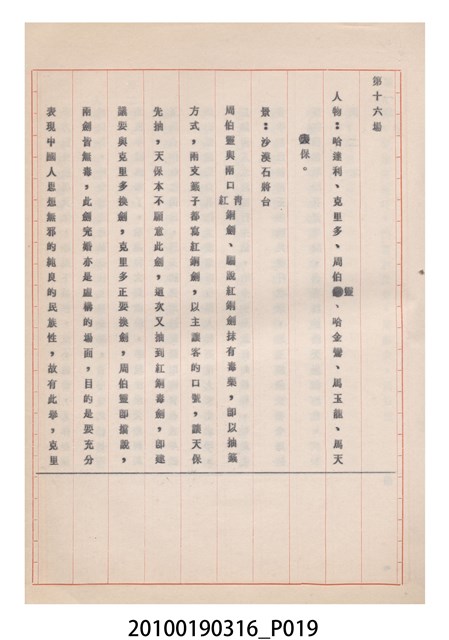 第十六場
人物：哈達利、克里多、周伯靈、哈金聲、馬玉龍、馬天
保。
景：沙漠石將台
周伯靈與兩口青紅銅劍、騙說紅銅劍抹有毒藥，即以抽籤
方式，兩支籤子都寫紅銅劍，以主讓客的口號，讓天保
先抽，天保本不願意此劍，這次又抽到紅銅毒劍，即建
議要與克里多換劍，克里多正要換劍，周伯靈即搶說，
兩劍皆無毒，此劍完婚亦是虛構的場面，目的是要充分
表現中國人思想無邪的純良的民族性，故有此舉，克里
20100190316_P019